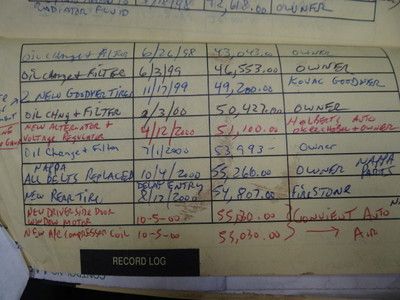 RADIATOR FLUID OWNER
OIL Change & FILTER 6/26/98 43,043.00 OWNER
OIL Change & FILTER 6/3/99 46,553.00 OWNER
2 NEW GOODYEAR TIRES 11/17/99 49,200.00 KOVAC GOODYEAR
OIL CHNG & FILTER 2/3/00 50,427.00 OWNER
NEW ALTERNATOR & VOLTAGE REGULATOR 4/12/2000 51,100.00 AUTO OWNER
OIL Change & Filter 7/1/2000 53,993- Owner
NAPPA
ALL BELTS REPLACED 10/4/2000 55,260.00 OWNER NAPPA PARTS
DELAY ENTRY
NEW REAR TIRE 8/17/2000 54,807.00 FIRESTONE
NEW DRIVER-SIDE DOOR WINDOW MOTOR 10-5-00 55,030.00 CONVIENT AUTO
NEW A/C COMPRESSOR COIL 10-5-00 55,030.00 → AIR
RECORD LOG